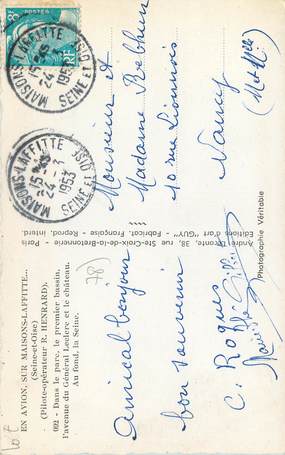 EN AVION, SUR MAISONS-LAFFITTE...
(Seine-et-Oise)
(Pilote-opérateur R. HENRARD).
092 - Dans le parc, le premier bassin,
l'avenue du Général Leclerc et le château.
Au fond, la Seine.
78)
Amical bonjour
bon souvenir
C. Roques
André Leconte, 38, rue Ste-Croix-de-la-Bretonnerie - Paris
Éditions d'art "GUY" - Fabricat. Française - Reprod. Interd.
Photographie Véritable
POSTES
RF
MAISONS-LAFFITTE
24-3
1953
SEINE ET OISE
MAISONS-LAFFITTE
24-3
1953
SEINE ET OISE
Monsieur et
Madame Rebhun
10 rue Lionnois
Nancy
(M et Mlle)